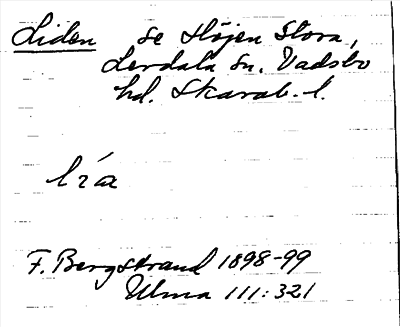 Liden se Höjen Stora,
Lerdala sn. Vadsbo
hd. Skarab. l.
F. Bergstrand 1898-99
Ulma 111:321